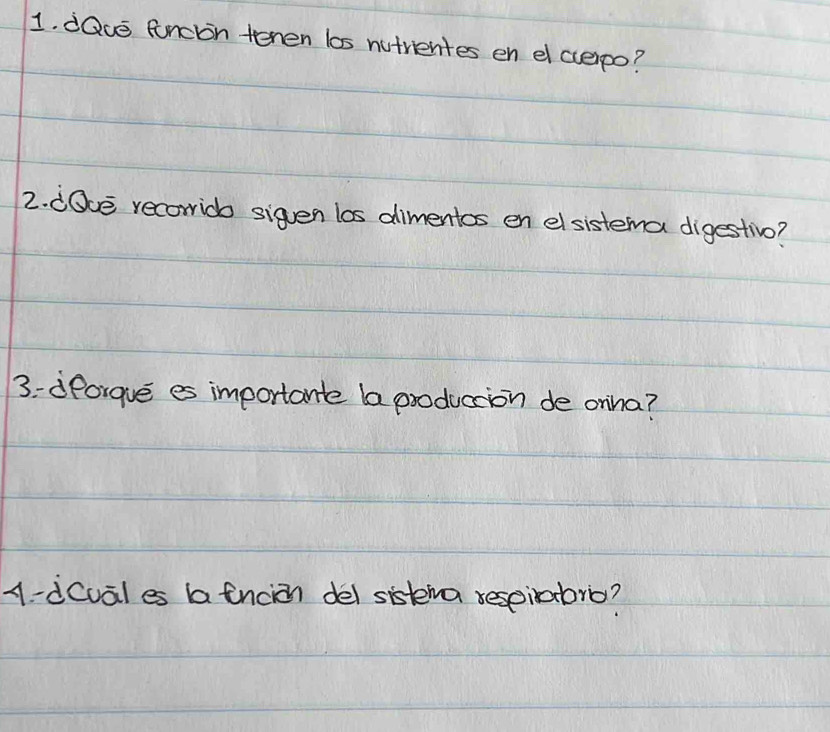 1. ¿Qué función tienen los nutrientes en el cuerpo?
2. ¿Qué recorrido siguen los alimentos en el sistema digestivo?
3.- ¿Porqué es importante la producción de orina?
4.- ¿Cuál es la función del sistema respiratorio?